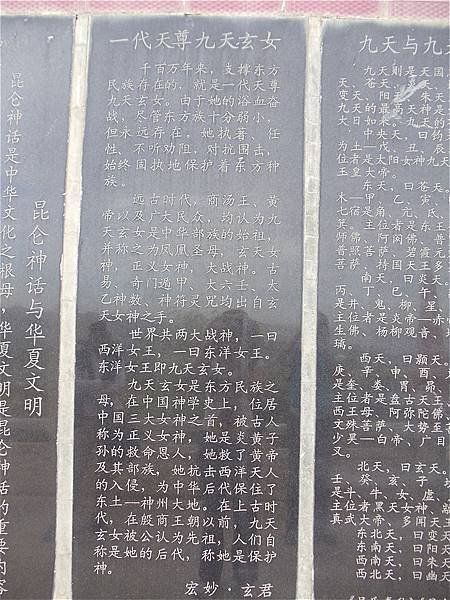 昆仑神话与华夏文明
昆仑神话是中华文化之根母,华夏文明是昆仑神话的重要内容
一代天尊九天玄女
千百万年来,支撑东方
民族存在的,就是一代天尊
九天玄女。由于她的浴血奋
战,尽管东方族十分弱小,
但永远存在。她执著、任
性,不听劝阻,对抗围击,
始终固执地保护着东方种
族。
远古时代,商汤王、黄
帝以及广大民众,均认为九
天玄女是中华部族的始祖,
并称之为凤凰圣母,玄天女
神,正义女神,大战神。古
易、奇门遁甲、大六壬、太
乙神数、神符灵咒均出自玄
天女神之手。
世界共两大战神,一曰
西洋女王,一曰东洋女王。
东洋女王即九天玄女。
九天玄女是东方民族之
母,在中国神学史上,位居
中国三大女神之首,被古人
称为正义女神,她是炎黄子
孙的救命恩人,她救了黄帝
及其部族,她抗击西洋天人
的入侵,为中华后代保住了
东土—神州大地。在上古时
代,在殷商王朝以前,九天
玄女被公认为先祖,人们自
称是她的后代,称她是保护
神。
宏妙·玄君
九天与九
九天则是天国,
天、苍天、
变天、阳天、朱天
九天的最高天神是
大日如来、九天的
中央天,曰钧
为土—戊、丑、辰
位者是太阳女神九天
玉皇大帝。
东天,曰苍天。
木—甲、乙、寅
七宿是角、亢、氐、
箕。主位者是东王
师佛、阿闵佛、普
普照菩萨、碧霞元
菩萨、持国天王多
南天,曰炎天。
丙、丁、巳、午、
是井、鬼、柳、星、
主位者是炎帝—赤
生佛、杨柳观音、
璃。
西天,曰颢天。
庚、辛、申、酉、
是奎、娄、胃、昴、
主位者是盘古天王
西王母、阿弥陀佛
文殊菩萨、大势至
少昊—白帝、广目
叉。
北天,曰玄天。
壬、癸、亥、子
是斗、牛、女、虚、
主位者黑天女神、
真武大帝、多闻天王
东北天,曰变天
东南天,曰阳天
西南天,曰朱天
西北天,曰幽天